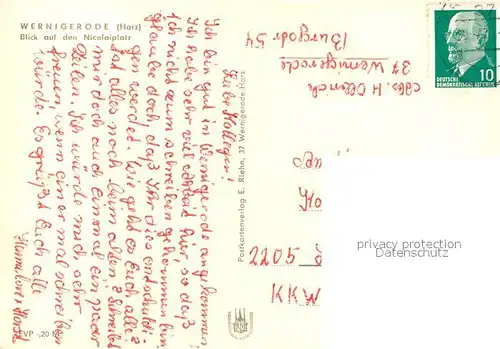 WERNIGERODE (Harz)
Blick auf den Nicolaiplatz
Liebe Kollegen!
Ich bin gut in Wernigerode angekommen
Ich habe sehr viel Arbeit hier, so daß
ich nicht zum schreiben gekommen bin.
glaube doch, daß Ihr dies entschuldi-
gen werdet. Wie geht es Euch alle?
Ist alles noch beim alten? Schreibt
mir doch auch einmal ein paar
Zeilen. Ich würde mich sehr
freuen wenn einer mal schreiben
würde. Es grüßt Euch alle
Horst
EVP -,20 M
Postkartenverlag E. Riehn, 37 Wernigerode Harz
Abs. H.
37 Wernigerode
Burgstr 54
10
DEUTSCHE
DEMOKRATISCHE REPUBLIK
2205
KKW
privacy protection
Datenschutz